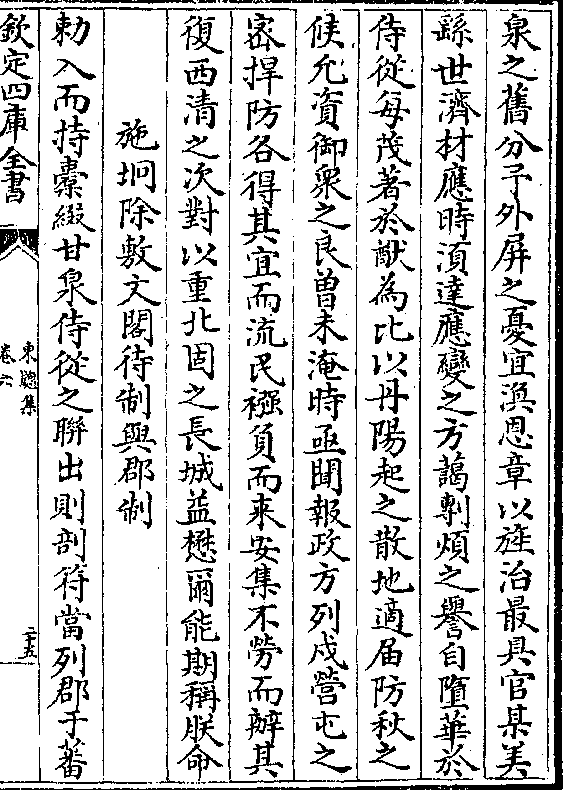 泉之舊分予外屏之憂宜渙恩章以旌治最具官某美
繇世濟材應時湏達應變之方藹剸煩之譽自墮華於
侍從每茂著於猷為比以丹陽起之散地適届防秋之
候允資御衆之良曽未淹時亟聞報政方列戍營屯之
宻捍防各得其宜而流民襁負而来安集不勞而辦其
復西清之次對以重北固之長城益懋爾能期稱朕命
施坰除敷文閣待制與郡制
勅入而持橐綴甘泉侍從之聨出則剖符當列郡于蕃
欽定四庫全書
東牕集
卷六
二十五